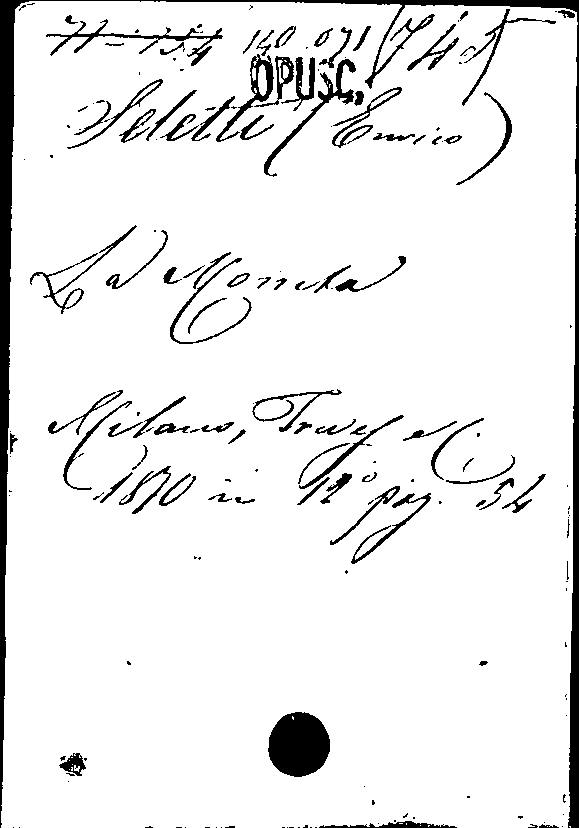 71-154 140 071 / 745
OPUSC.
Seletti (Enrico)
La Moneta
Milano, Treves e C.
1870 in 12° pag. 54